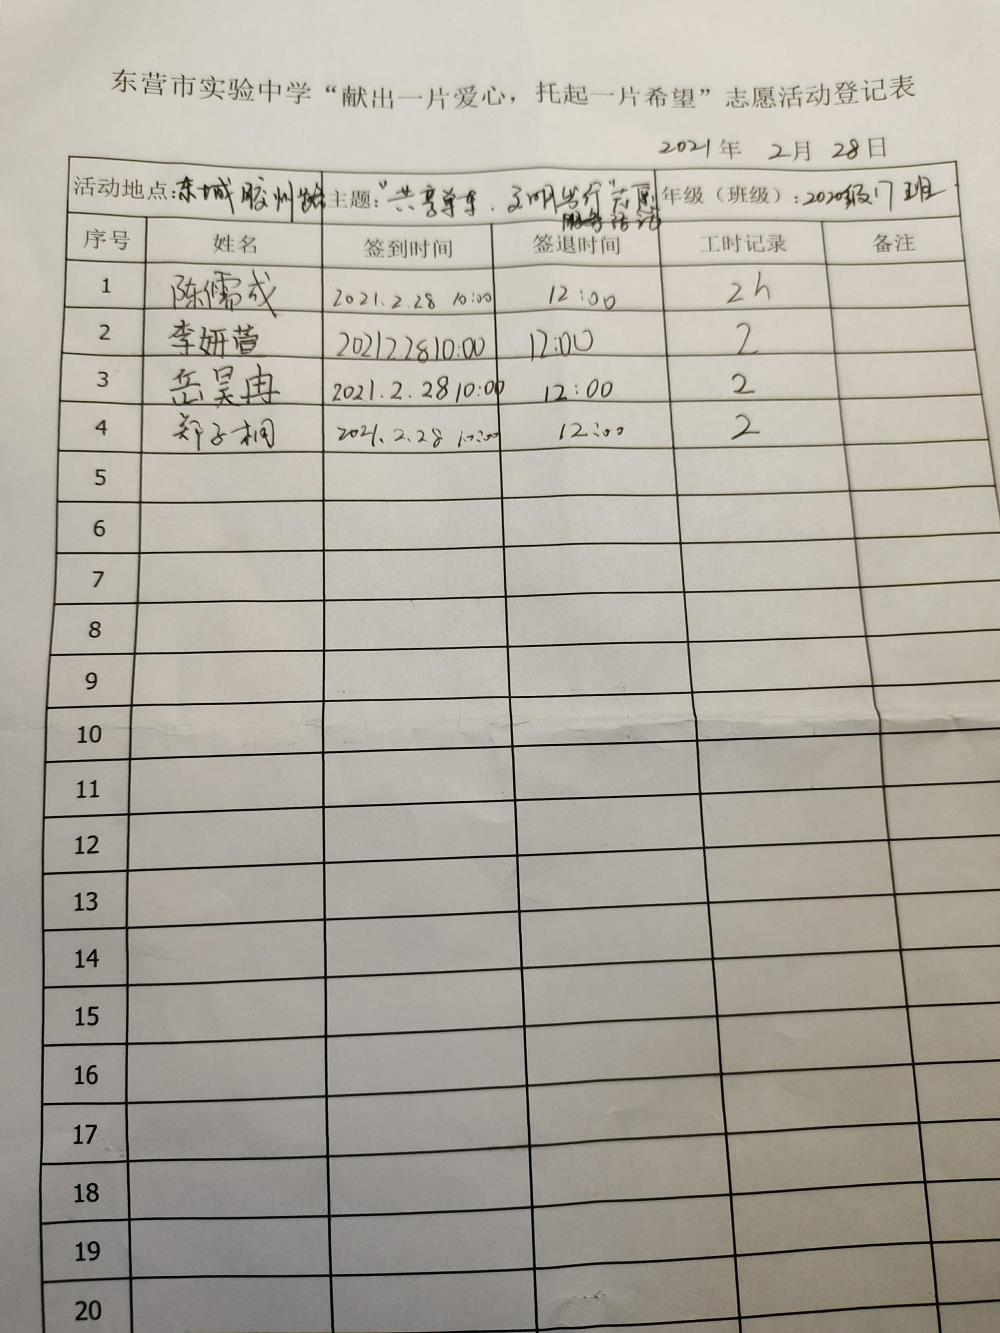 东营市实验中学“献出一片爱心，托起一片希望”志愿活动登记表
2021年 2月 28日
活动地点：东城胶州路 主题：“共享单车，文明出行”志愿服务活动 年级（班级）：2020级17班
序号 姓名 签到时间 签退时间 工时记录 备注
1 陈儒成 2021.2.28 10:00 12:00 2h
2 李妍萱 2021.2.28 10:00 12:00 2
3 岳昊冉 2021.2.28 10:00 12:00 2
4 郑子桐 2021.2.28 10:00 12:00 2
5
6
7
8
9
10
11
12
13
14
15
16
17
18
19
20